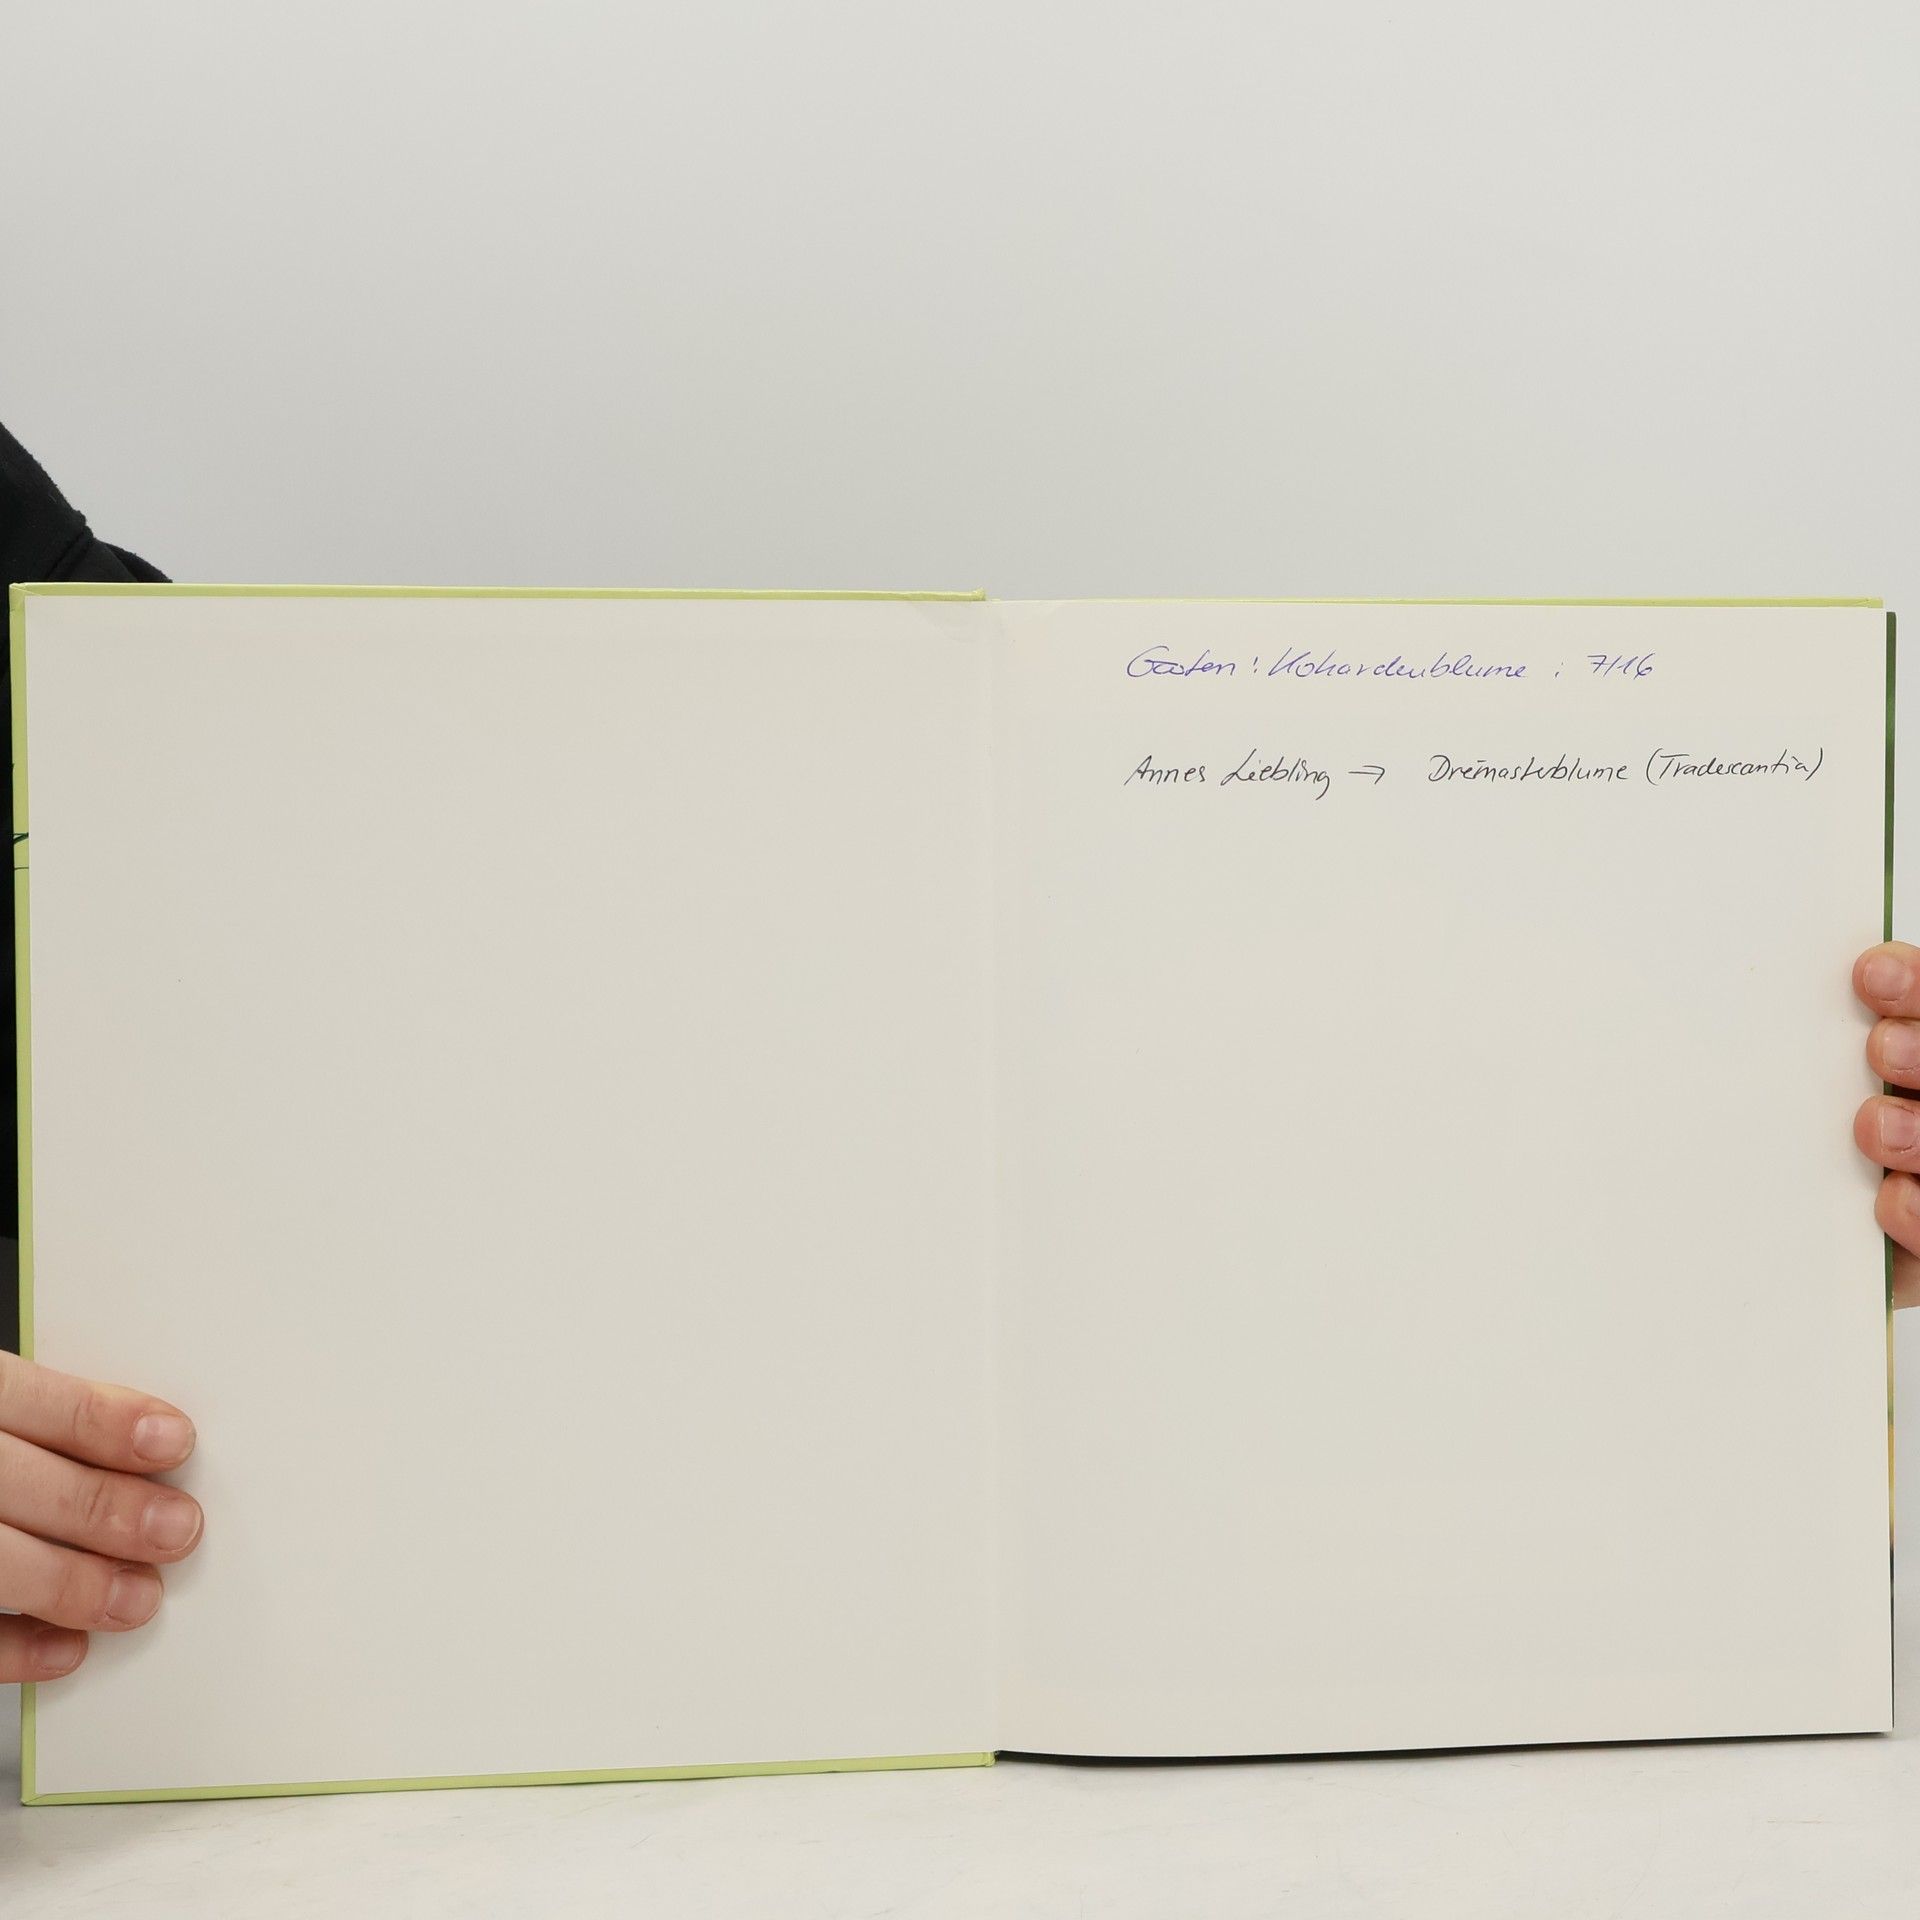 Garten : Kokardenblume : 7/16
Annes Liebling → Dreimasterblume (Tradescantia)